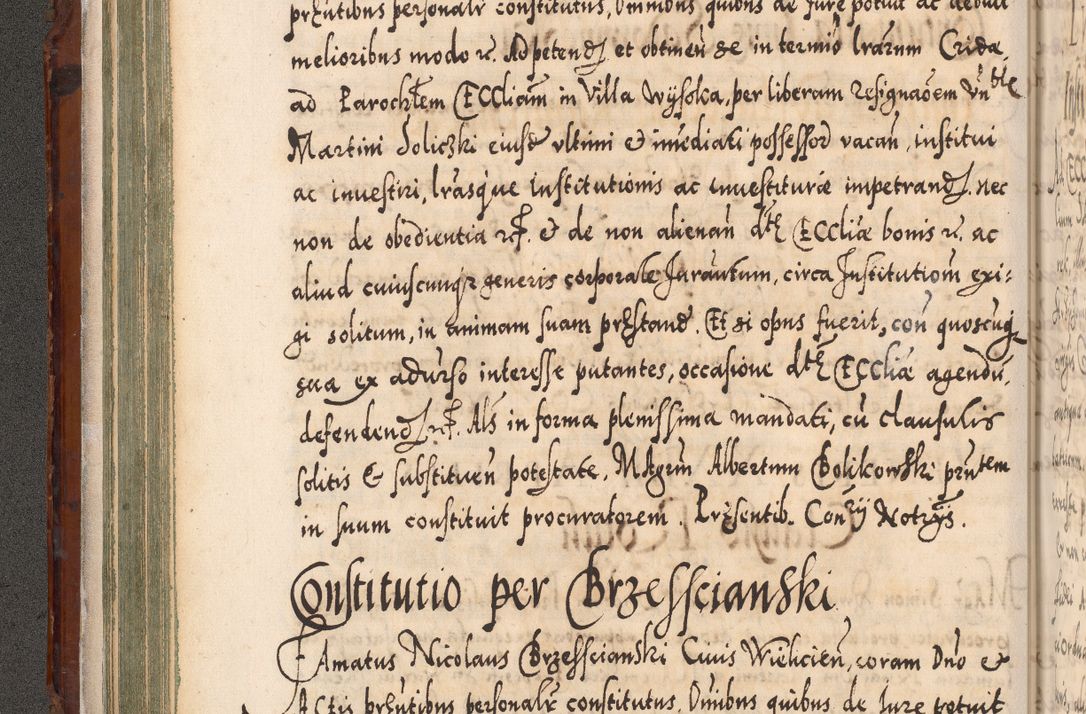 prȩntibus personalr constitutus, Omnibus quibus de Jure potuit ac debuit
melioribus modo rc. Ad petend et obtineñ se in termiõ lrarum Crida.
ad Parochlem ECCliam in villa Wysoka, per liberam resignaõem Vñblis
Martini Soliczki eiusd ultimi & imediati possessor vacañ, institui
ac investiri, lrasque institutionis ac investituræ impetrand. nec
non de obedientia rc. & de non alienañ dctȩ ECCliæ bonis rc. ac
aliud cuiuscunqȝ generis corporale Juramtum, circa Institutiom exi:
gi solitum, in animam suam prȩstand. Et si opus fuerit, con quoscuqȝ
sua ex adurso interesse putantes, occasione dctȩ ECCliæ agendũ,
defendend rc. Als in forma plenissima mandati, cũ clausulis
solitis & substitueñ potestate, Mgrum Albertum Bolikowski prntem
in suum constituit procuratorem. Prȩsentib. Conrij Notrijs.
Constitutio per Brzesscianski
Famatus Nicolaus Brzesscianski Cuius Wielicieñ, coram Dno &
Actis prȩntibus personalr constitutus, Omibus quibus de Jure potuit